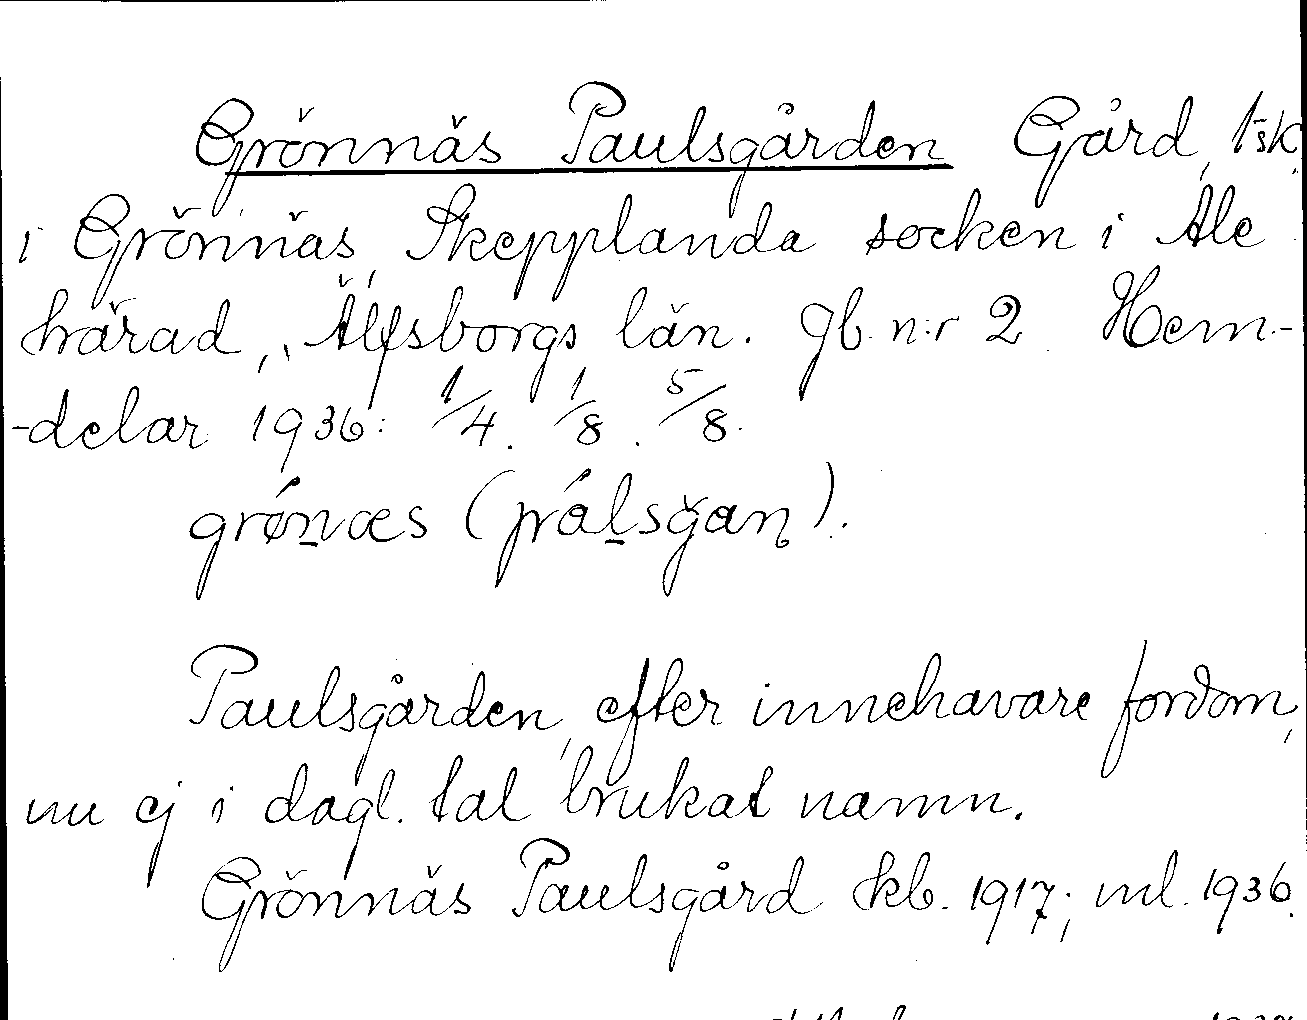 Grönnäs Paulsgården Gård, 1 sk.
i Grönnäs, Skepplanda socken i Ale
härad, Älfsborgs län. Jb. n:r 2. Hem-
-delar 1936: 1/4. 1/8. 5/8.
grǿn̠æs (pál̠sğaɳ).
Paulsgården, efter innehavare fordom,
nu ej i dagl. tal brukat namn.
Grönnäs Paulsgård skb. 1917; ml. 1936.